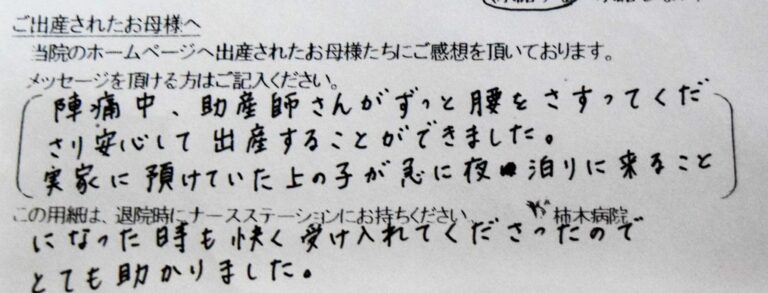 ご出産されたお母様へ
当院のホームページへ出産されたお母様たちにご感想を頂いております。
メッセージを頂ける方はご記入ください。
陣痛中、助産師さんがずっと腰をさすってくだ
さり安心して出産することができました。
実家に預けていた上の子が急に夜泊りに来ること
この用紙は、退院時にナースステーションにお持ちください 柿木病院
になった時も快く受け入れてくださったので
とても助かりました。